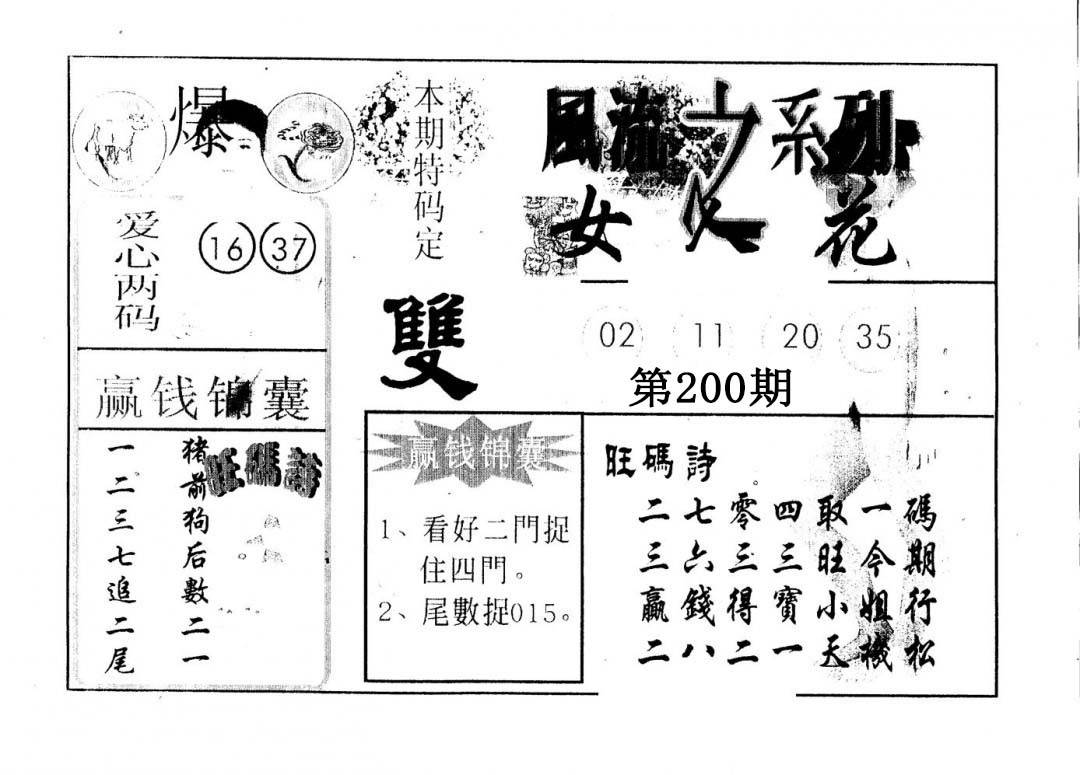 爆
爱心两码
16 37
赢钱锦囊
一二三七追二尾
猪前狗后數二一
旺碼詩
本期特码定
雙
風流之系列
女人花
02 11 20 35
第200期
赢钱锦囊
1、看好二門捉
住四門。
2、尾數捉015。
旺碼詩
二七零四取一碼
三六三三旺今期
赢錢得寶小姐行
二八二一天機松